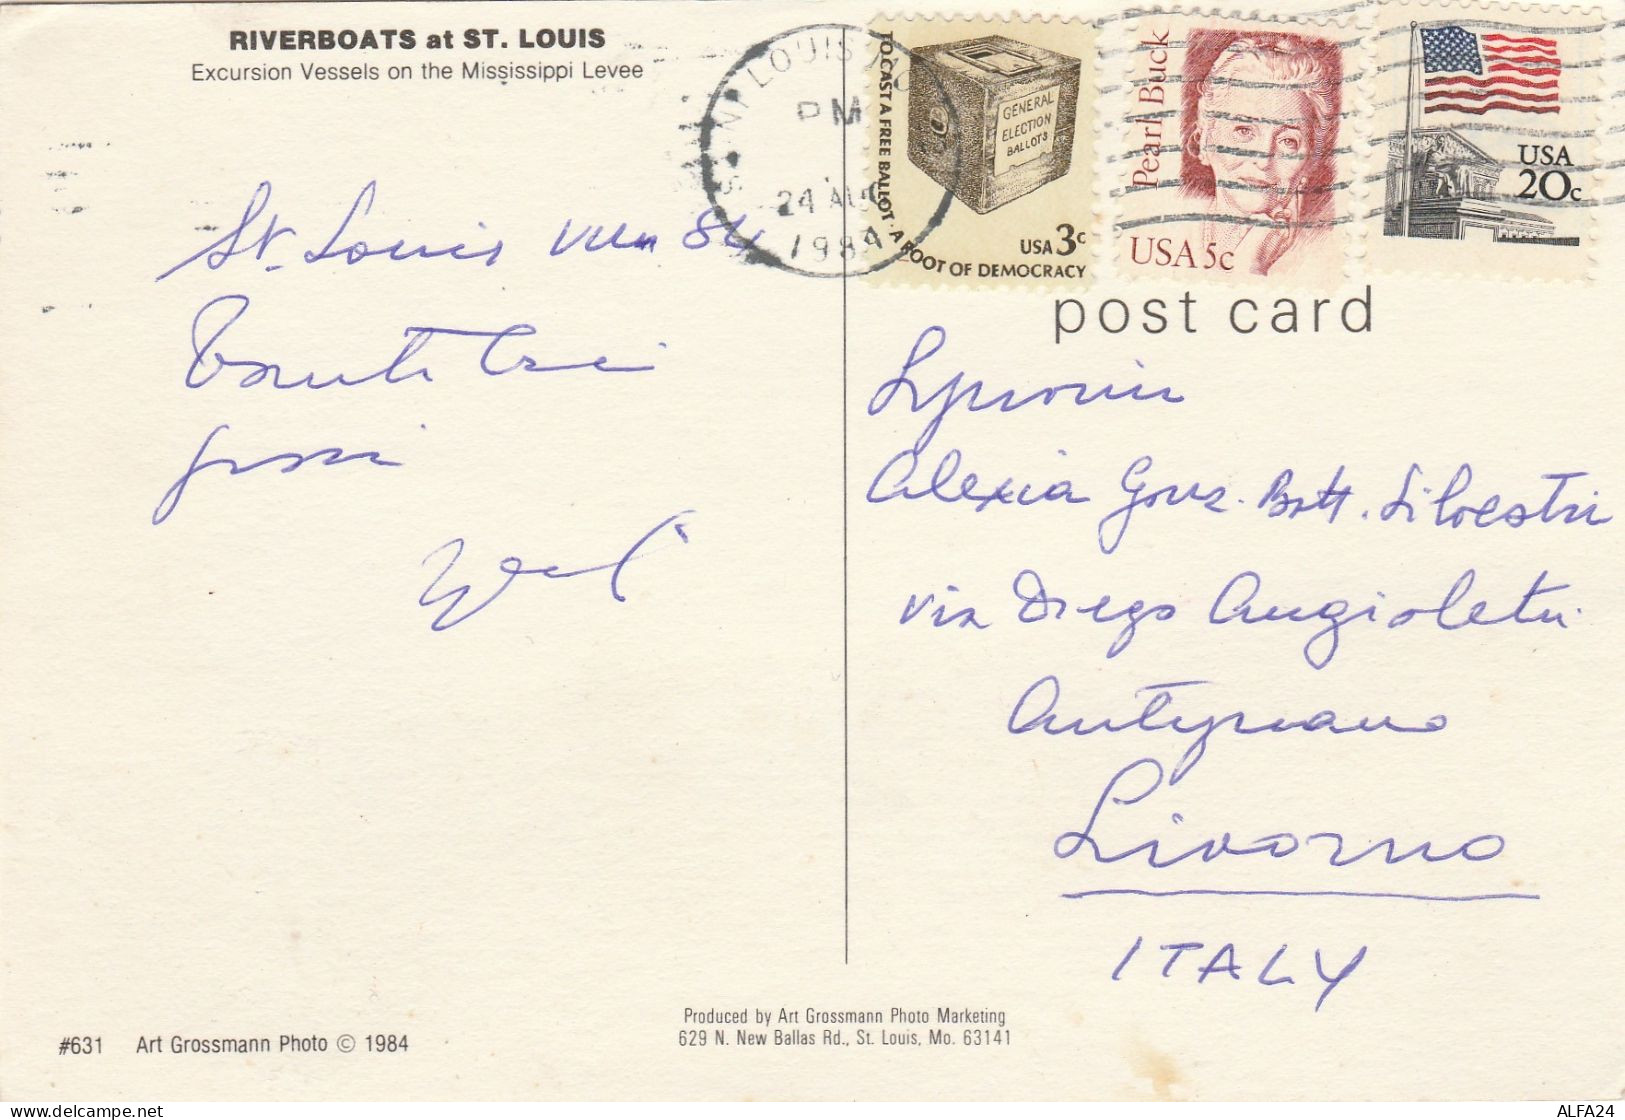 RIVERBOATS at ST. LOUIS
Excursion Vessels on the Mississippi Levee
ST. LOUIS MO
PM
24 AUG
1984
TO CAST A FREE BALLOT · A ROOT OF DEMOCRACY
GENERAL
ELECTION
BALLOTS
USA 3c
Pearl Buck
USA 5c
USA
20c
post card
St. Louis VIII 84
Tanti cari
Alexia Gonz. Batt. Silvestri
via Diego Angioletti
Antignano
Livorno
ITALY
#631 Art Grossmann Photo © 1984
Produced by Art Grossmann Photo Marketing
629 N. New Ballas Rd., St. Louis, Mo. 63141
ALFA24